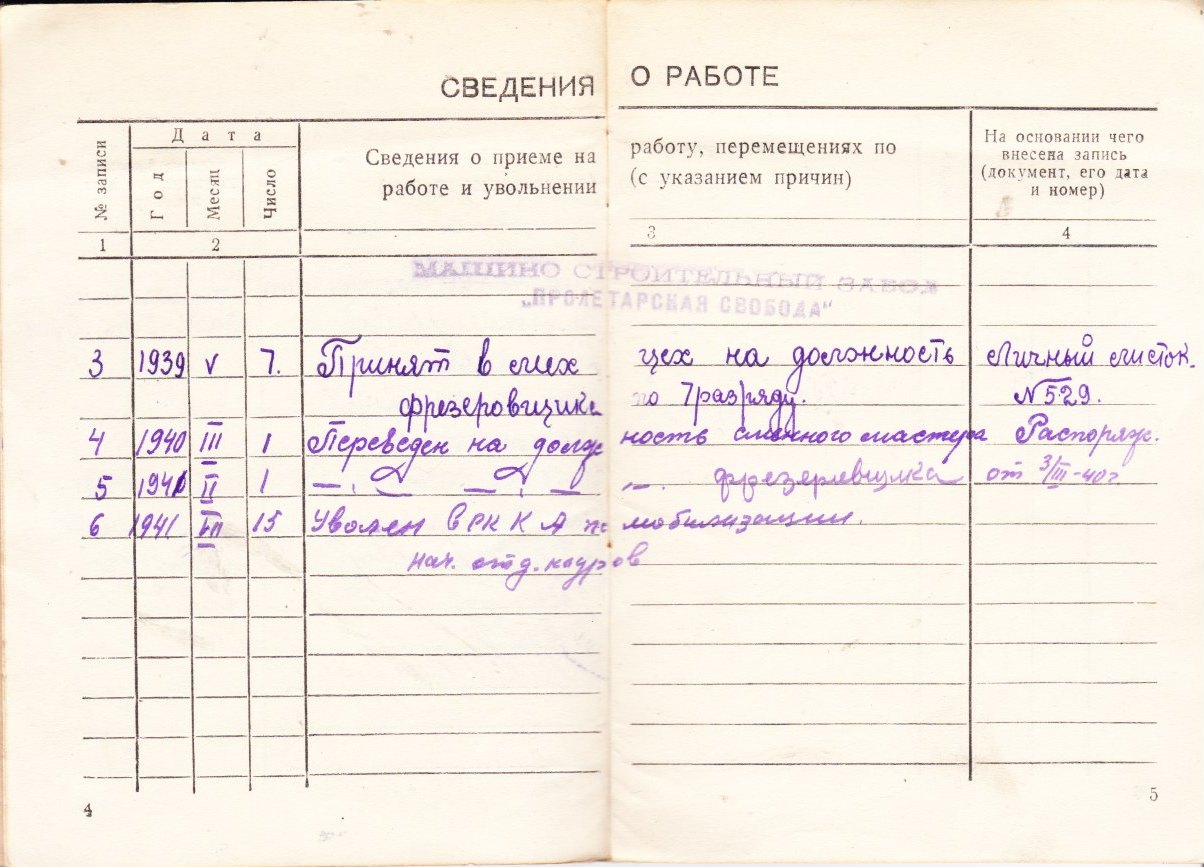 СВЕДЕНИЯ О РАБОТЕ
№ записи
Дата
Год
Месяц
Число
Сведения о приеме на работу, перемещениях по
работе и увольнении (с указанием причин)
На основании чего
внесена запись
(документ, его дата
и номер)
1 2 3 4
МАШИНО СТРОИТЕЛЬНЫЙ ЗАВОД
„ПРОЛЕТАРСКАЯ СВОБОДА"
3 1939 V 7. Принят в мех цех на должность Личный листок.
фрезеровщика по 7 разряду. № 529.
4 1940 III 1 Переведен на долж ность сменного мастера Распоряж.
5 1941 II 1 —„— —„— —„— фрезеровщика от 3/III-40 г
6 1941 VII 15 Уволен в РККА по мобилизации.
нач. отд. кадров
4
5